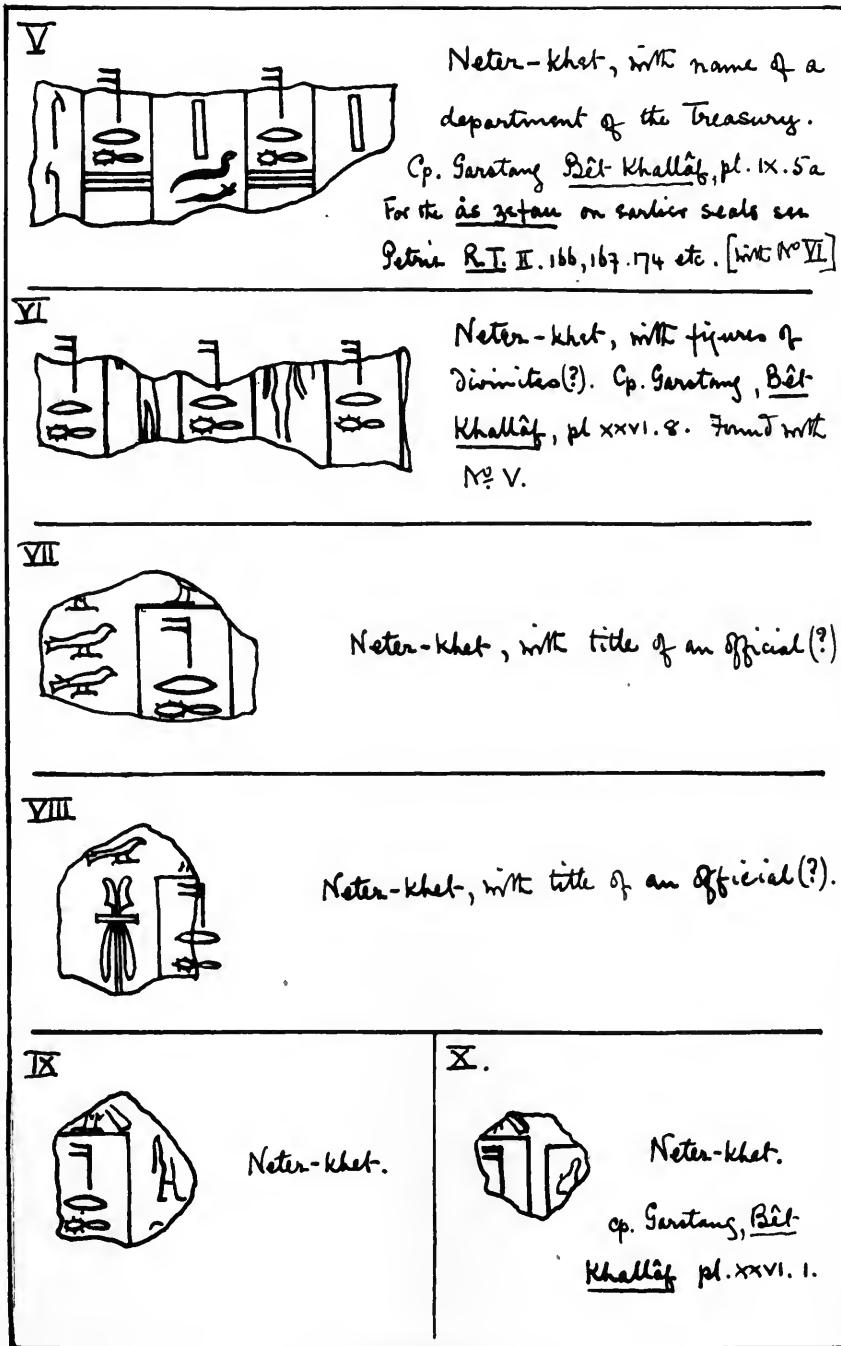 V
Neter-khet, with name of a
department of the Treasury.
Cp. Garstang Bêt Khallâf, pl. IX. 5a
For the âs zefau on earlier seals see
Petrie R.T. II. 166, 167. 174 etc. [with No VI]
VI
Neter-khet, with figures of
divinites(?). Cp. Garstang, Bêt
Khallâf, pl xxvi. 8. Found with
No V.
VII
Neter-khet, with title of an official (?)
VIII
Neter-khet, with title of an official (?).
IX
Neter-khet.
X.
Neter-khet.
cp. Garstang, Bêt
Khallâf pl. xxvi. 1.